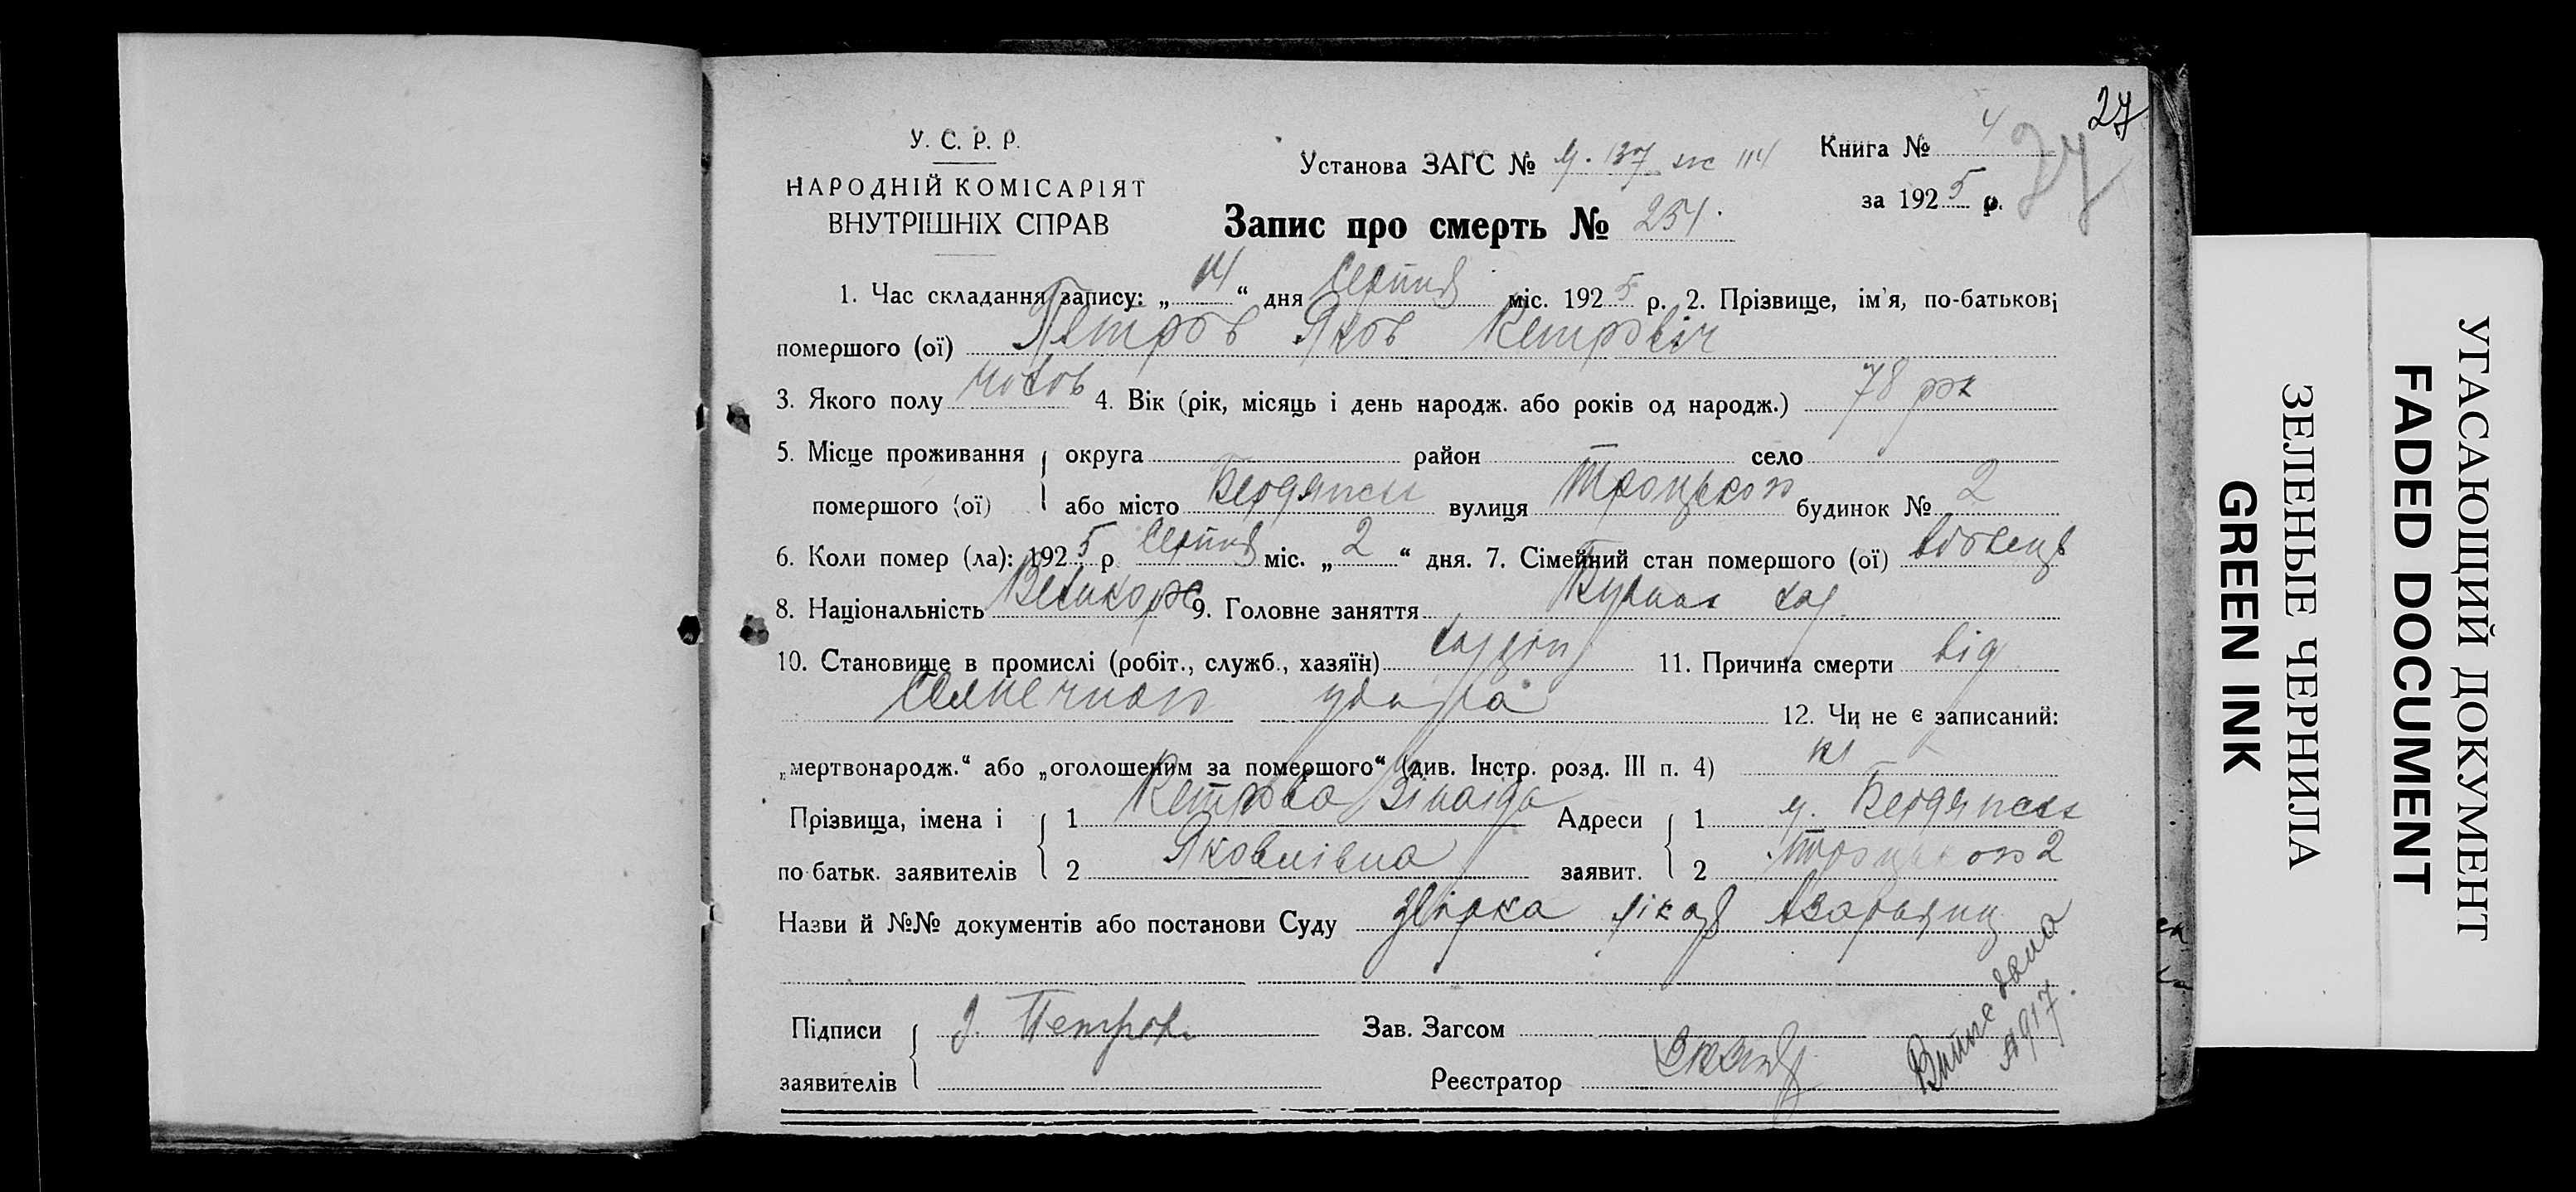 27
У. С. Р. Р.
НАРОДНІЙ КОМІСАРІЯТ
ВНУТРІШНІХ СПРАВ
Установа ЗАГС №
Книга № 4
27
за 1925 р.
Запис про смерть № 254.
1. Час складання запису: „14“ дня Серпня міс. 1925 р. 2. Прізвище, ім'я, по-батькові
помершого (ої) Петров Яков Петровіч
3. Якого полу чолов 4. Вік (рік, місяць і день народж. або років од народж.) 78 рок
5. Місце проживання округа район село
помершого (ої) або місто Бердянськ вулиця Троцького будинок № 2
6. Коли помер (ла): 1925 р Серпня міс. „2“ дня. 7. Сімейний стан помершого (ої) вдовець
8. Національність Великорос 9. Головне заняття
10. Становище в промислі (робіт., служб., хазяїн) 11. Причина смерти від
Солнечного удара 12. Чи не є записаний:
„мертвонародж.“ або „оголошеним за помершого“ (див. Інстр. розд. III п. 4) ні
Прізвища, імена і 1 Петрова Зінаіда Адреси 1 м. Бердянськ
по батьк. заявителів 2 Яковлівна заявит. 2 Троцького 2
Назви й №№ документів або постанови Суду лікаря
Підписи З. Петрова Зав. Загсом
заявителів Реєстратор
Выпис дана
917
УГАСАЮЩИЙ ДОКУМЕНТ
FADED DOCUMENT
ЗЕЛЕНЫЕ ЧЕРНИЛА
GREEN INK